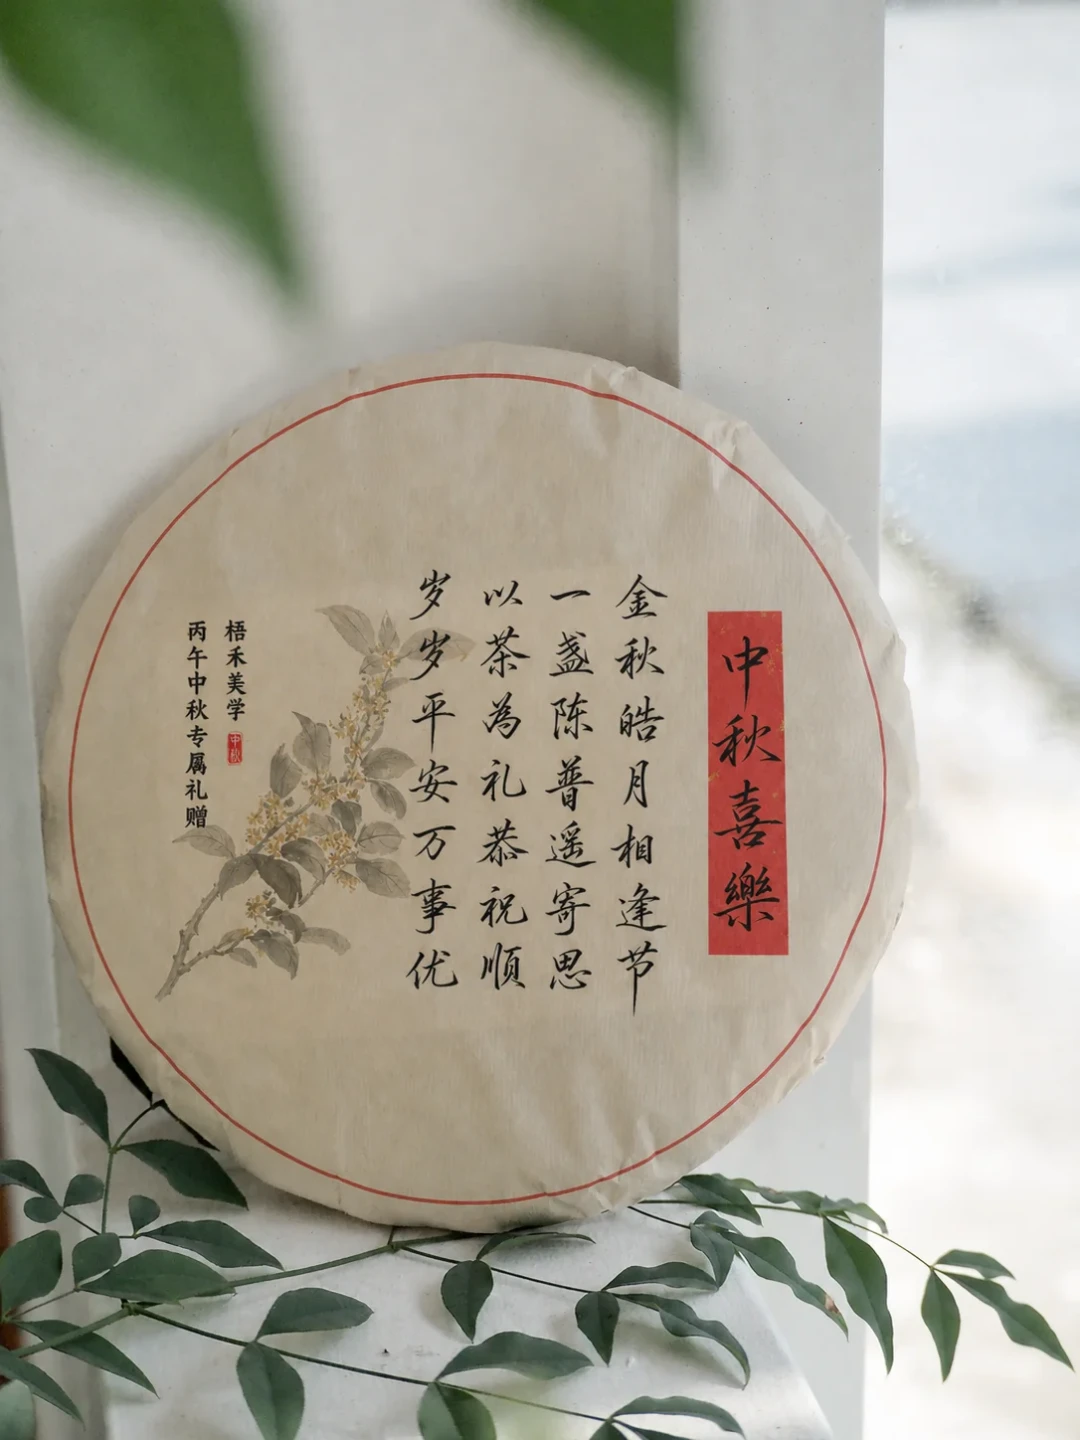 中秋喜樂
金秋皓月相逢节
一盏陈普遥寄思
以茶為礼恭祝顺
岁岁平安万事优
梧禾美学
中秋
丙午中秋专属礼赠